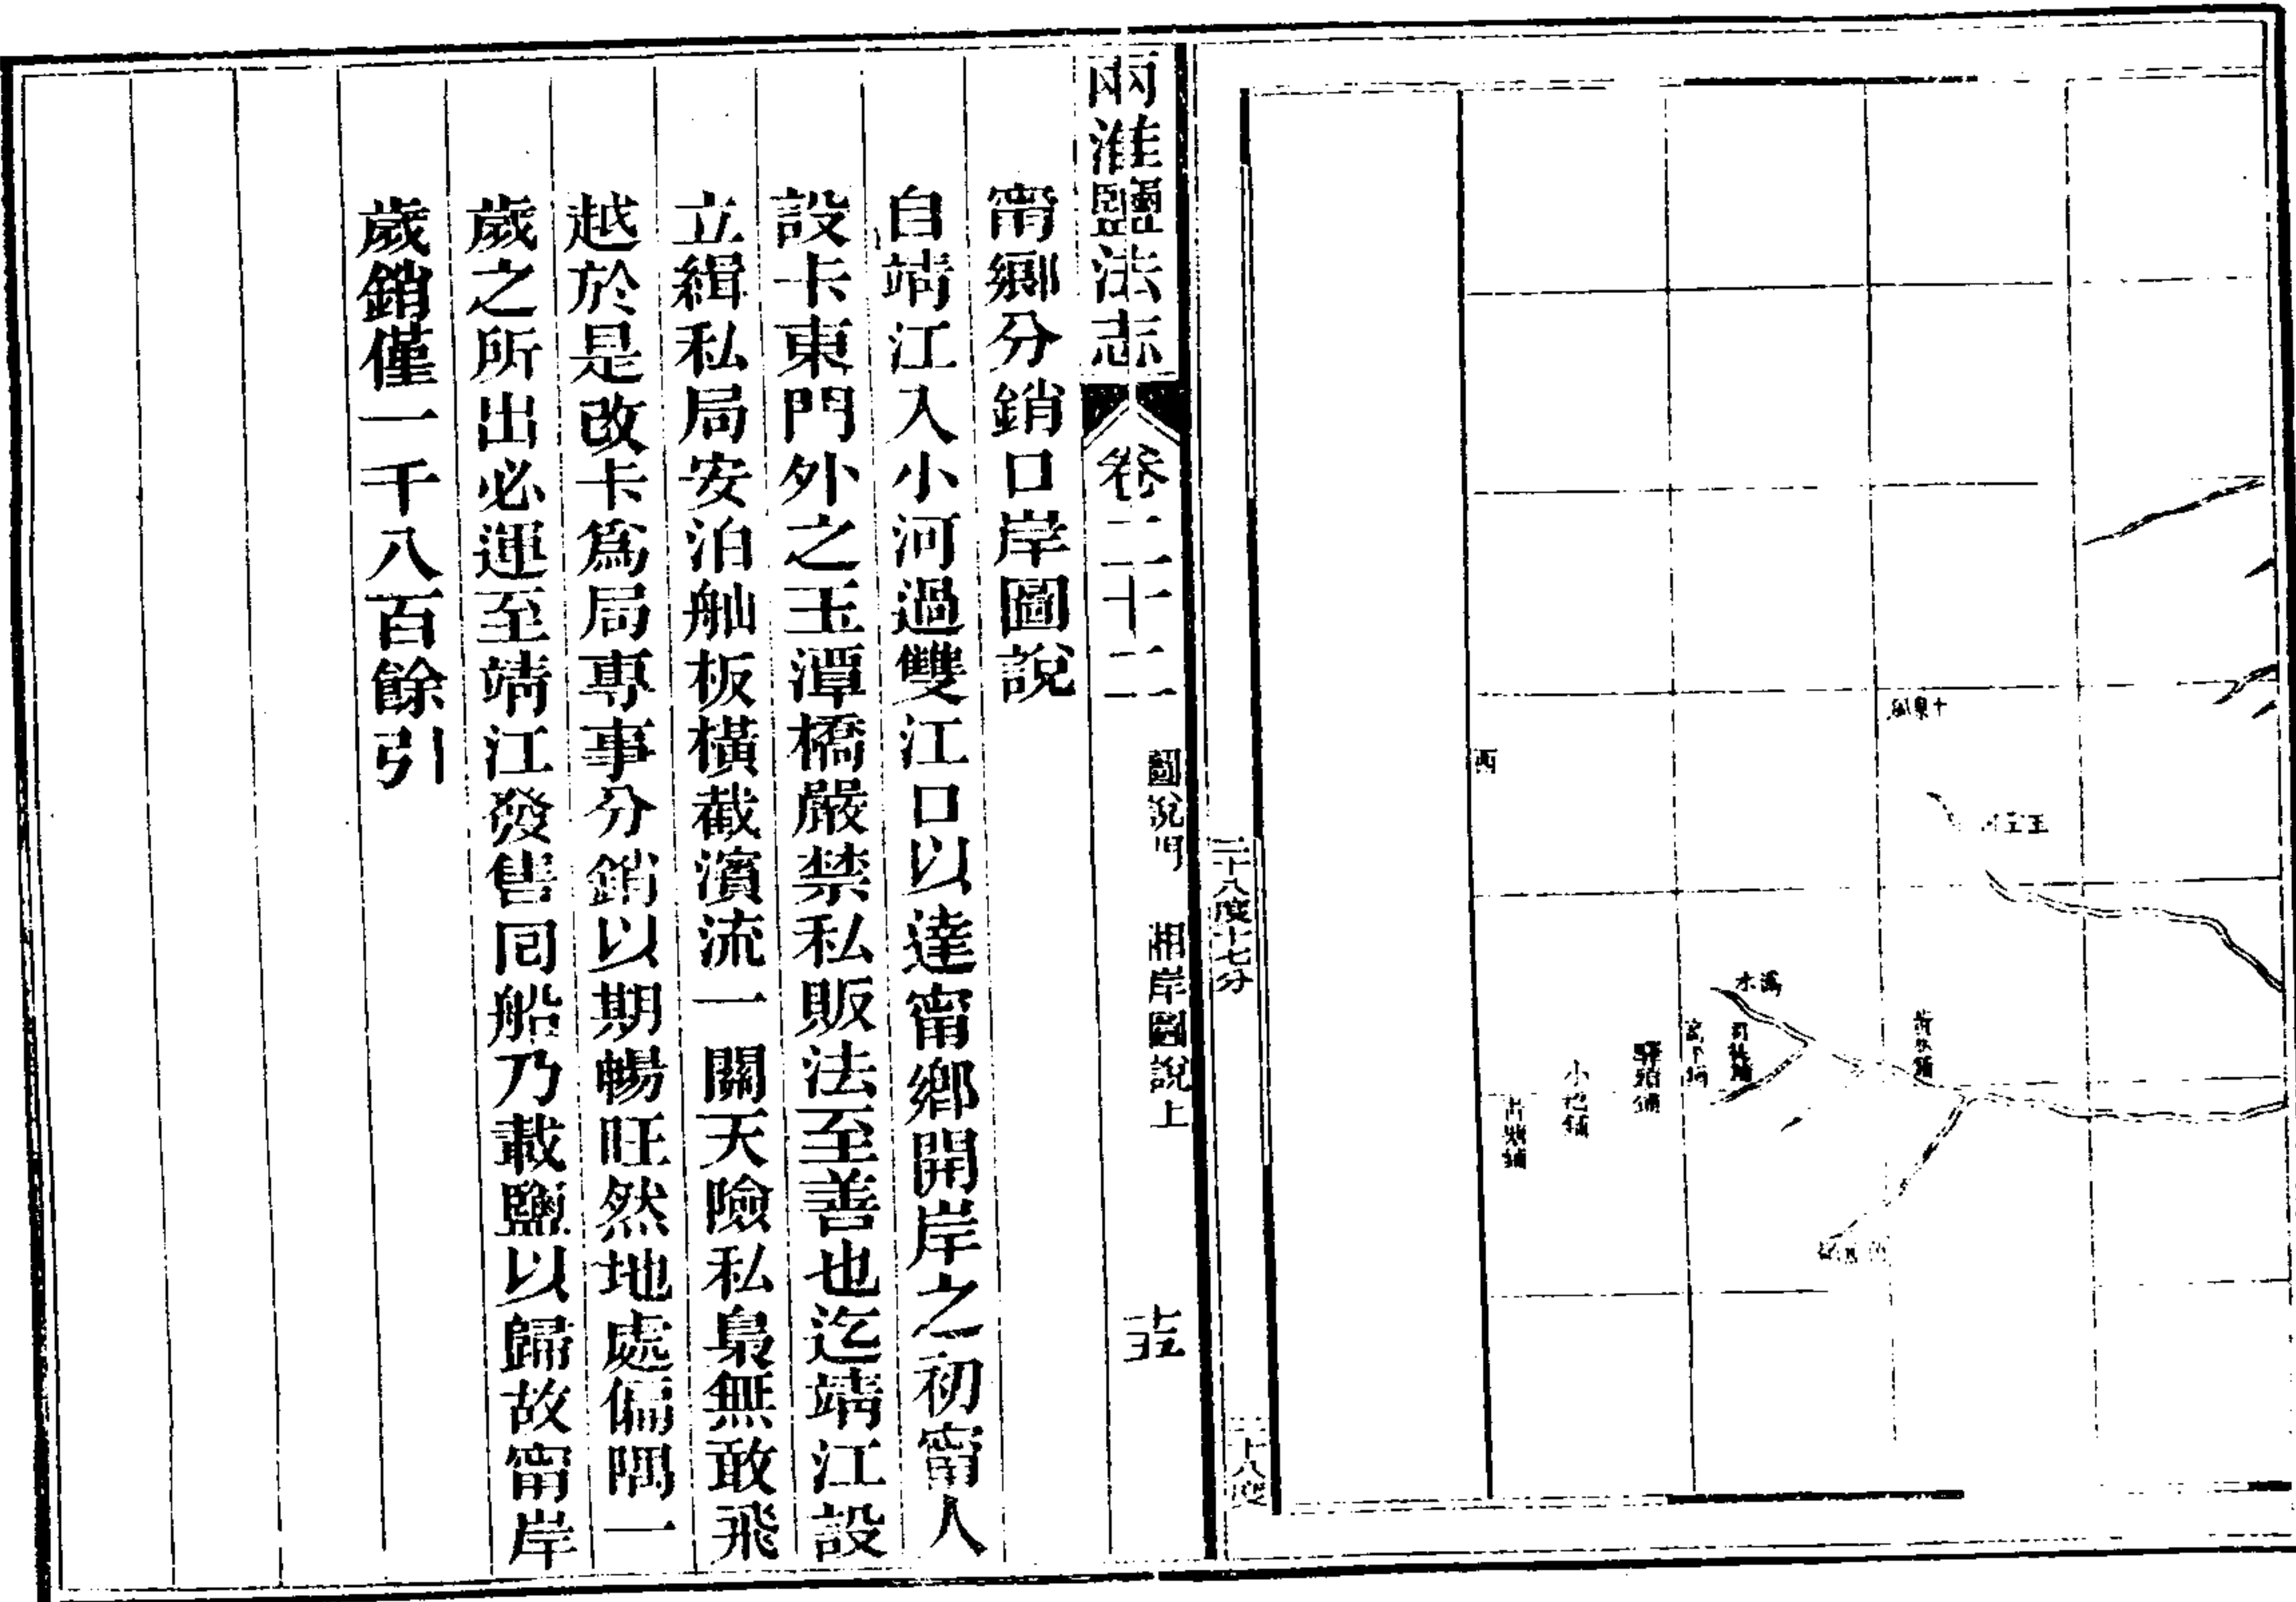 西
水溈
小花鋪
二十八度十七分
二十八度
兩淮鹽法志
卷二十二
圖說門
湘岸圖說上
甯鄉分銷口岸圖說
自靖江入小河過雙江口以達甯鄉開岸之初甯人
設卡東門外之玉潭橋嚴禁私販法至善也迄靖江設
立緝私局安泊舢板橫截濱流一關天險私梟無敢飛
越於是改卡爲局專事分銷以期暢旺然地處偏隅一
歲之所出必運至靖江發售囘船乃載鹽以歸故甯岸
歲銷僅一千八百餘引